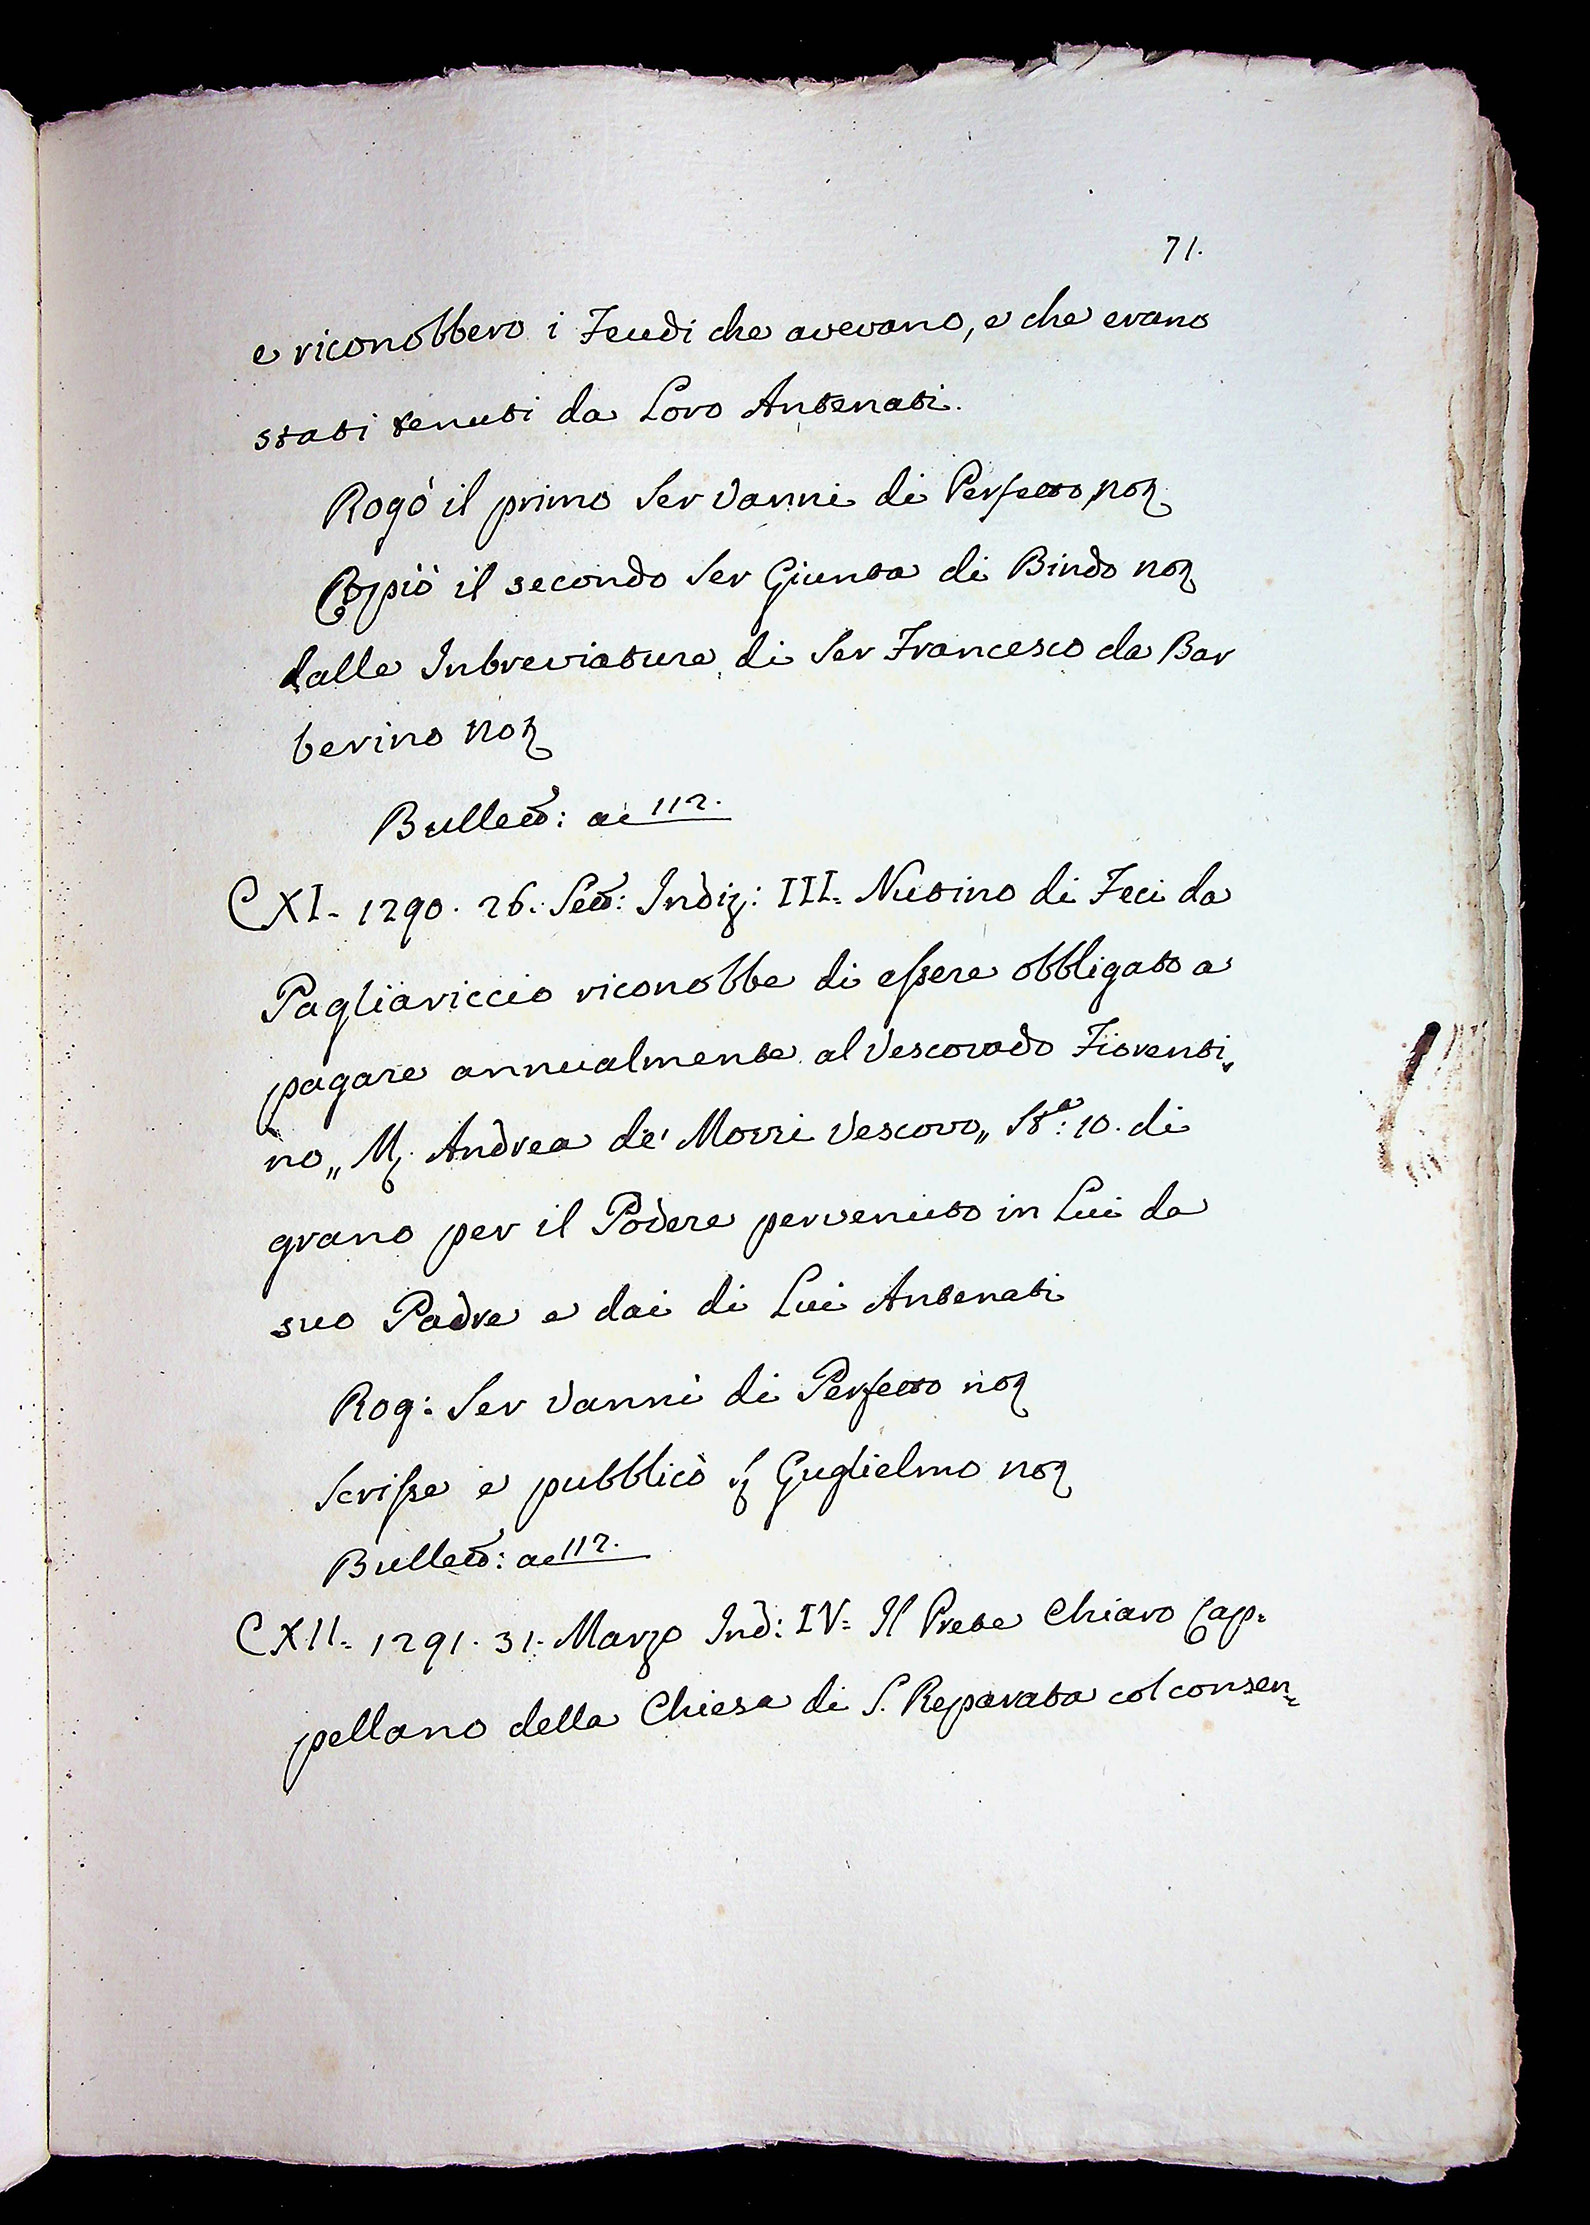 71.
e riconobbero i Feudi che avevano, e che erano
stati tenuti da Loro Antenati.
Rogò il primo Ser Vanni di Perfetto Not
Copiò il secondo Ser Giunta di Bindo not
dalle Inbreviature di Ser Francesco da Bar
berino Not
Bullett: ac 112.
CXI- 1290. 26. Sett: Indiz: III= Nutino di Feci da
Pagliariccio riconobbe di essere obbligato a
pagare annualmente al Vescovado Fiorenti„
no „ M. Andrea de' Mozzi Vescovo „ Sta: 10. di
grano per il Podere pervenuto in Lui da
suo Padre e dai di Lui Antenati
Rog: Ser Vanni di Perfetto not
Scrisse e pubblicò S. Guglielmo not
Bullett: ac 112.
CXII= 1291. 31. Marzo Ind: IV= Il Prete Chiaro Cap=
pellano della Chiesa di S. Reparata col consen=